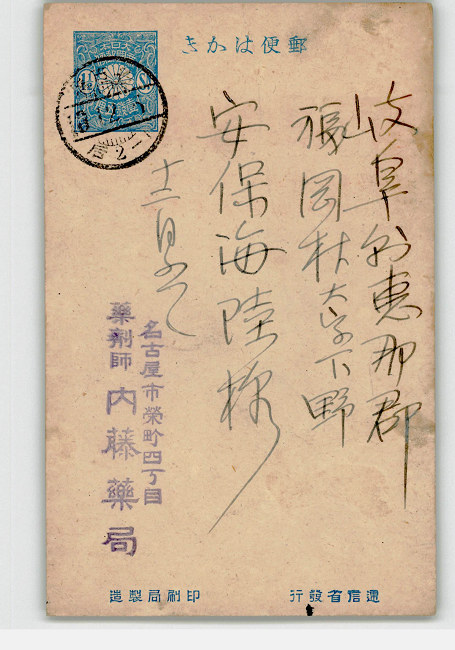 郵便はかき
岐阜縣惠那郡
福岡村大字下野
安保海陸様
名古屋市榮町四丁目
藥劑師 内藤藥局
遞信省發行
印刷局製造